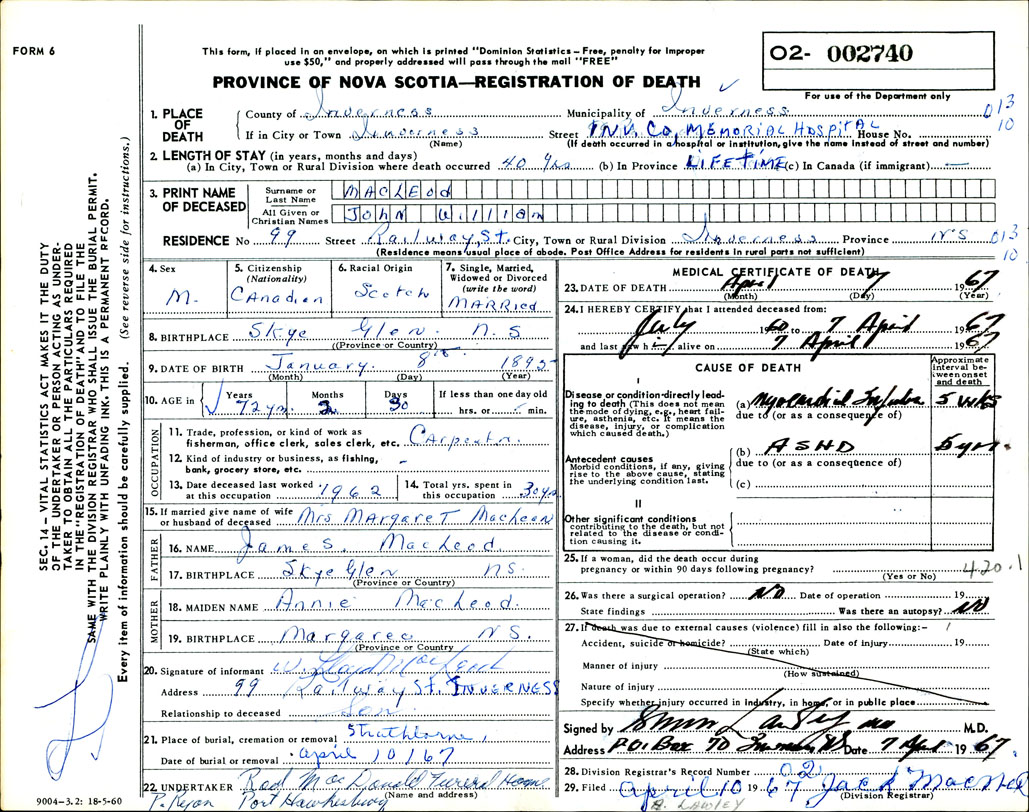 FORM 6
This form, if placed in an envelope, on which is printed "Dominion Statistics – Free, penalty for improper
use $50," and properly addressed will pass through the mail "FREE"
PROVINCE OF NOVA SCOTIA—REGISTRATION OF DEATH
02- 002740
For use of the Department only
SEC. 14 – VITAL STATISTICS ACT MAKES IT THE DUTY
OF THE UNDERTAKER OR PERSON ACTING AS UNDER-
TAKER TO OBTAIN ALL THE PARTICULARS REQUIRED
IN THE "REGISTRATION OF DEATH" AND TO FILE THE
SAME WITH THE DIVISION REGISTRAR WHO SHALL ISSUE THE BURIAL PERMIT.
WRITE PLAINLY WITH UNFADING INK. THIS IS A PERMANENT RECORD.
Every item of information should be carefully supplied. (See reverse side for instructions.)
1. PLACE OF DEATH County of Inverness Municipality of Inverness 013
If in City or Town Inverness Street INV. CO. MEMORIAL HOSPITAL House No. 10
(Name) (If death occurred in a hospital or institution, give the name instead of street and number)
2. LENGTH OF STAY (in years, months and days)
(a) In City, Town or Rural Division where death occurred 40 yrs (b) In Province LIFETIME (c) In Canada (if immigrant) —
3. PRINT NAME OF DECEASED Surname or Last Name MacLEod
All Given or Christian Names John Willian
RESIDENCE No 99 Street Railway St. City, Town or Rural Division Inverness Province N.S 013
(Residence means usual place of abode. Post Office Address for residents in rural parts not sufficient) 10
4. Sex M.
5. Citizenship (Nationality) Canadian
6. Racial Origin Scotch
7. Single, Married, Widowed or Divorced (write the word) MARRied
8. BIRTHPLACE Skye Glen. N.S
(Province or Country)
9. DATE OF BIRTH January 8th 1895
(Month) (Day) (Year)
10. AGE in Years 72 yrs. Months 2 Days 30 If less than one day old hrs. or min.
OCCUPATION
11. Trade, profession, or kind of work as
fisherman, office clerk, sales clerk, etc. Carpentr.
12. Kind of industry or business, as fishing,
bank, grocery store, etc. -
13. Date deceased last worked at this occupation 1962 14. Total yrs. spent in this occupation 30 yrs
15. If married give name of wife or husband of deceased Mrs Margaret MacLeod
FATHER
16. NAME James. MacLeod.
17. BIRTHPLACE Skye Glen N.S.
(Province or Country)
MOTHER
18. MAIDEN NAME Annie MacLeod.
19. BIRTHPLACE Margaree N.S.
(Province or Country)
20. Signature of informant W. Lloyd MacLeod
Address 99 Railway St. INVERNESS
Relationship to deceased Son
21. Place of burial, cremation or removal Strathlorne,
Date of burial or removal april 10/67
22. UNDERTAKER Rod MacDonald Funeral Home
(Name and address)
Port Hawkesbury
9004-3.2: 18-5-60
MEDICAL CERTIFICATE OF DEATH
23. DATE OF DEATH April 7 1967
(Month) (Day) (Year)
24. I HEREBY CERTIFY that I attended deceased from:
July 1960 to 7 April 1967
and last saw h i. alive on 7 April 1967
CAUSE OF DEATH
Approximate interval between onset and death
I
Disease or condition directly leading to death (This does not mean the mode of dying, e.g., heart failure, asthenia, etc. It means the disease, injury, or complication which caused death.)
(a) Myocardial 5 wks
due to (or as a consequence of)
Antecedent causes
Morbid conditions, if any, giving rise to the above cause, stating the underlying condition last.
(b) ASHD 5 yrs.
due to (or as a consequence of)
(c)
II
Other significant conditions contributing to the death, but not related to the disease or condition causing it.
25. If a woman, did the death occur during
pregnancy or within 90 days following pregnancy?
(Yes or No) 420.1
26. Was there a surgical operation? NO Date of operation 19
State findings Was there an autopsy? NO
27. If death was due to external causes (violence) fill in also the following:–
Accident, suicide or homicide? Date of injury 19
(State which)
Manner of injury
(How sustained)
Nature of injury
Specify whether injury occurred in industry, in home, or in public place
Signed by M.D.
Address P.O. Box 70 Inverness NS Date 7 April 1967.
28. Division Registrar's Record Number 02
29. Filed april 10 1967 Jack MacNeil
(Division Registrar)
LAWLEY